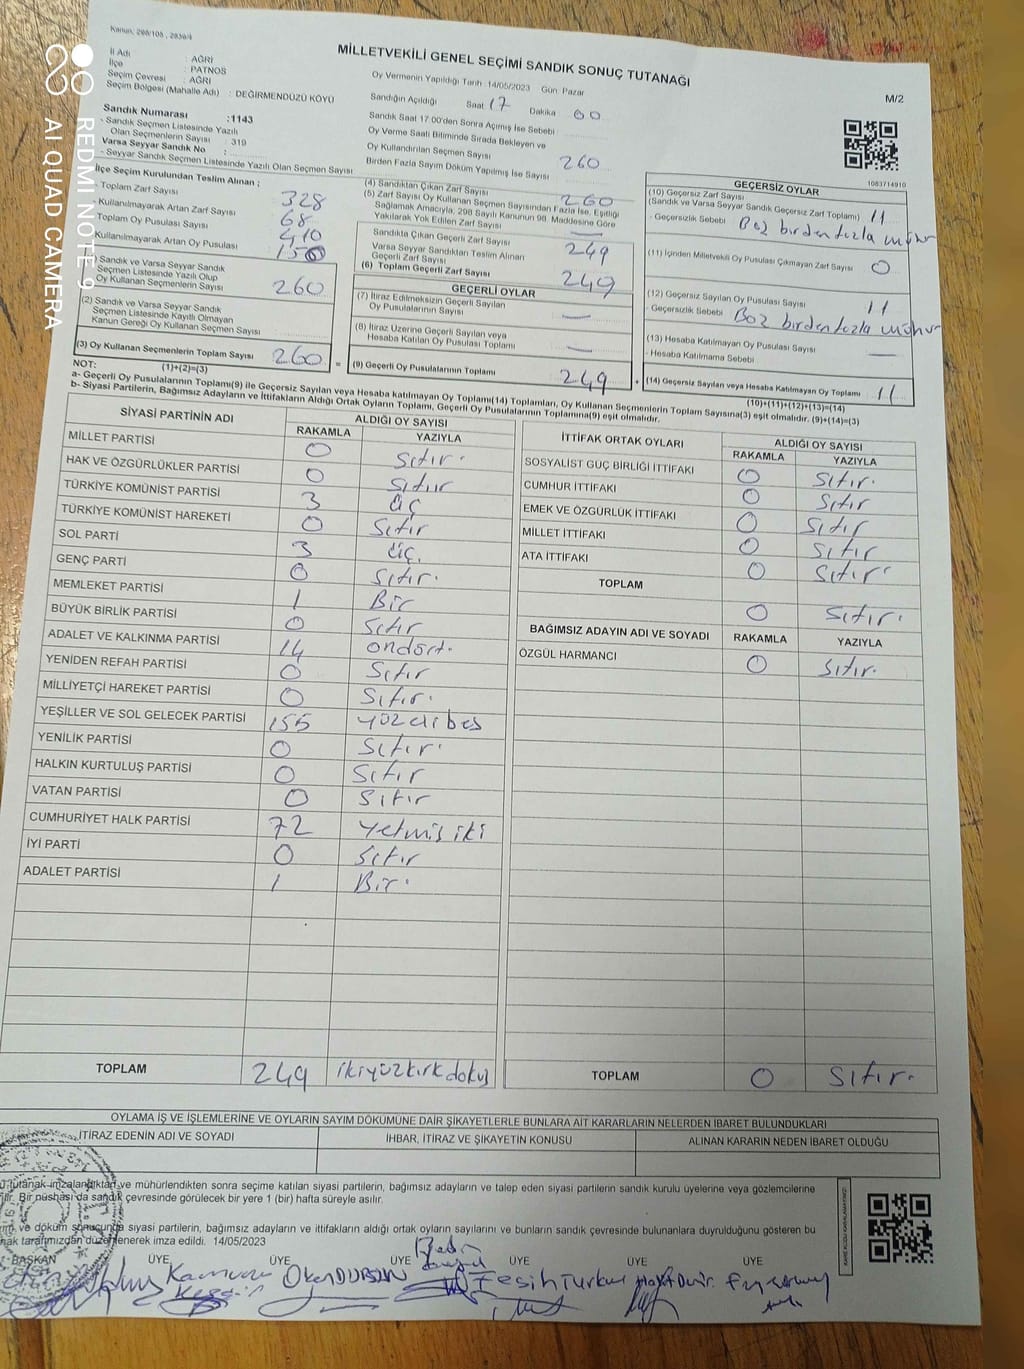 Kanun: 298/105 , 2839/4
MİLLETVEKİLİ GENEL SEÇİMİ SANDIK SONUÇ TUTANAĞI
M/2
İl Adı : AĞRI
İlçe : PATNOS
Seçim Çevresi : AĞRI
Seçim Bölgesi (Mahalle Adı) : DEĞİRMENDÜZÜ KÖYÜ
Sandık Numarası :1143
- Sandık Seçmen Listesinde Yazılı
Olan Seçmenlerin Sayısı : 319
Varsa Seyyar Sandık No :
- Seyyar Sandık Seçmen Listesinde Yazılı Olan Seçmen Sayısı
Oy Vermenin Yapıldığı Tarih :14/05/2023 Gün: Pazar
Sandığın Açıldığı Saat 17 Dakika 00
Sandık Saat 17:00'den Sonra Açılmış İse Sebebi
Oy Verme Saati Bitiminde Sırada Bekleyen ve
Oy Kullandırılan Seçmen Sayısı 260
Birden Fazla Sayım Döküm Yapılmış İse Sayısı
1083714910
İlçe Seçim Kurulundan Teslim Alınan ;
- Toplam Zarf Sayısı 328
- Kullanılmayarak Artan Zarf Sayısı 68
Toplam Oy Pusulası Sayısı 410
Kullanılmayarak Artan Oy Pusulası 150
(1) Sandık ve Varsa Seyyar Sandık
Seçmen Listesinde Yazılı Olup
Oy Kullanan Seçmenlerin Sayısı 260
(2) Sandık ve Varsa Seyyar Sandık
Seçmen Listesinde Kayıtlı Olmayan
Kanun Gereği Oy Kullanan Seçmen Sayısı
(3) Oy Kullanan Seçmenlerin Toplam Sayısı 260 =
(1)+(2)=(3)
(4) Sandıktan Çıkan Zarf Sayısı 260
(5) Zarf Sayısı Oy Kullanan Seçmen Sayısından Fazla İse, Eşitliği
Sağlamak Amacıyla, 298 Sayılı Kanunun 98. Maddesine Göre
Yakılarak Yok Edilen Zarf Sayısı —
Sandıkta Çıkan Geçerli Zarf Sayısı 249
Varsa Seyyar Sandıktan Teslim Alınan
Geçerli Zarf Sayısı
(6) Toplam Geçerli Zarf Sayısı 249
GEÇERLİ OYLAR
(7) İtiraz Edilmeksizin Geçerli Sayılan
Oy Pusulalarının Sayısı —
(8) İtiraz Üzerine Geçerli Sayılan veya
Hesaba Katılan Oy Pusulası Toplamı —
(9) Geçerli Oy Pusulalarının Toplamı 249
GEÇERSİZ OYLAR
(10) Geçersiz Zarf Sayısı
(Sandık ve Varsa Seyyar Sandık Geçersiz Zarf Toplamı) 11
- Geçersizlik Sebebi
(11) İçinden Milletvekili Oy Pusulası Çıkmayan Zarf Sayısı 0
(12) Geçersiz Sayılan Oy Pusulası Sayısı 11
- Geçersizlik Sebebi
(13) Hesaba Katılmayan Oy Pusulası Sayısı —
- Hesaba Katılmama Sebebi
(14) Geçersiz Sayılan veya Hesaba Katılmayan Oy Toplamı 11
(10)+(11)+(12)+(13)=(14)
NOT:
a- Geçerli Oy Pusulalarının Toplamı(9) ile Geçersiz Sayılan veya Hesaba Katılmayan Oy Toplamı(14) Toplamları, Oy Kullanan Seçmenlerin Toplam Sayısına(3) eşit olmalıdır. (9)+(14)=(3)
b- Siyasi Partilerin, Bağımsız Adayların ve İttifakların Aldığı Ortak Oyların Toplamı, Geçerli Oy Pusulalarının Toplamına(9) eşit olmalıdır.
SİYASİ PARTİNİN ADI ALDIĞI OY SAYISI
RAKAMLA YAZIYLA
MİLLET PARTİSİ 0 Sıfır.
HAK VE ÖZGÜRLÜKLER PARTİSİ 0 Sıfır
TÜRKİYE KOMÜNİST PARTİSİ 3 üç
TÜRKİYE KOMÜNİST HAREKETİ 0 Sıfır
SOL PARTİ 3 üç.
GENÇ PARTİ 0 Sıfır.
MEMLEKET PARTİSİ 1 Bir
BÜYÜK BİRLİK PARTİSİ 0 Sıfır
ADALET VE KALKINMA PARTİSİ 14 ondört.
YENİDEN REFAH PARTİSİ 0 Sıfır
MİLLİYETÇİ HAREKET PARTİSİ 0 Sıfır.
YEŞİLLER VE SOL GELECEK PARTİSİ 155 yüzellibeş
YENİLİK PARTİSİ 0 Sıfır.
HALKIN KURTULUŞ PARTİSİ 0 Sıfır
VATAN PARTİSİ 0 Sıfır
CUMHURİYET HALK PARTİSİ 72 yetmiş iki
İYİ PARTİ 0 Sıfır
ADALET PARTİSİ 1 Bir.
TOPLAM 249 ikiyüzkırkdokuz
İTTİFAK ORTAK OYLARI ALDIĞI OY SAYISI
RAKAMLA YAZIYLA
SOSYALİST GÜÇ BİRLİĞİ İTTİFAKI 0 Sıfır.
CUMHUR İTTİFAKI 0 Sıfır
EMEK VE ÖZGÜRLÜK İTTİFAKI 0 Sıfır
MİLLET İTTİFAKI 0 Sıfır
ATA İTTİFAKI 0 Sıfır
TOPLAM 0 Sıfır.
BAĞIMSIZ ADAYIN ADI VE SOYADI RAKAMLA YAZIYLA
ÖZGÜL HARMANCI 0 Sıfır.
TOPLAM 0 Sıfır.
OYLAMA İŞ VE İŞLEMLERİNE VE OYLARIN SAYIM DÖKÜMÜNE DAİR ŞİKAYETLERLE BUNLARA AİT KARARLARIN NELERDEN İBARET BULUNDUKLARI
İTİRAZ EDENİN ADI VE SOYADI İHBAR, İTİRAZ VE ŞİKAYETİN KONUSU ALINAN KARARIN NEDEN İBARET OLDUĞU
tutanak imzalandıktan ve mühürlendikten sonra seçime katılan siyasi partilerin, bağımsız adayların ve talep eden siyasi partilerin sandık kurulu üyelerine veya gözlemcilerine
Bir nüshası da sandık çevresinde görülecek bir yere 1 (bir) hafta süreyle asılır.
ve döküm sonucunda siyasi partilerin, bağımsız adayların ve ittifakların aldığı ortak oyların sayılarını ve bunların sandık çevresinde bulunanlara duyurulduğunu gösteren bu
tarafımızdan düzenlenerek imza edildi. 14/05/2023
BAŞKAN ÜYE ÜYE ÜYE ÜYE ÜYE ÜYE
Okan DURSUN
REDMI NOTE 9
AI QUAD CAMERA